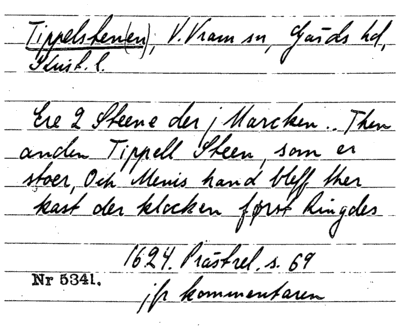 Tippelsten(en), V. Vram sn, Gärds hd,
Krist. l.
Ere 2 Steene der j Marcken.. Then
anden Tippell Steen, som er
stoer, Och Menis hand bleff ther
kast der klocken først Ringdes
1624. Prästrel. s. 69
Nr 5341.
jfr kommentaren